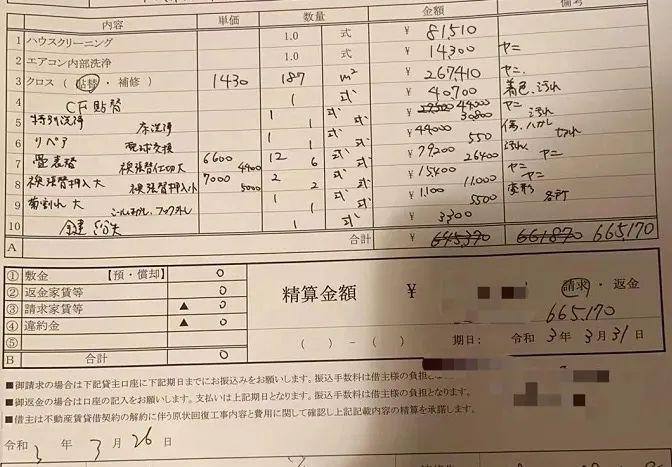 内容 単価 数量 金額 備考
1 ハウスクリーニング 1.0 式 ¥ 81,510
2 エアコン内部洗浄 1.0 式 ¥ 14,300 ヤニ
3 クロス（貼替・補修） 1430 187 m² ¥ 267,410 ヤニ
4 CF貼替 1 式 ¥ 40,700 着色、汚れ
5 特別洗浄 床洗浄 1 式 ¥ 44,000 30800 ヤニ 汚れ
6 リペア 電球交換 1 式 ¥ 44000 550 傷、ハガレ 切れ
7 畳表替 襖張替仕切大 6600 4400 12 6 式 ¥ 79,200 26400 汚れ ヤニ
8 襖張替押入大 襖張替押入小 7000 5000 2 2 式 ¥ 15400 11.000 ヤニ ヤニ
9 1 式 ¥ 1.100 5500 変形 各所
10 鍵紛失 1 式 ¥ 3,300
A 合計 ¥ 645,370 661,870 665,170
① 敷金 【預・償却】 0
② 返金家賃等 0
③ 請求家賃等 ▲ 0
④ 違約金 ▲ 0
⑤
B 合計 0
精算金額 ¥ 請求・返金
665,170
（ ）－（ ） 期日： 令和 3年 3月 31日
■御請求の場合は下記貸主口座に下記期日までにお振込みをお願いします。振込手数料は借主様の負担
■御返金の場合は口座の記入をお願いします。支払いは上記期日となります。振込手数料は借主様の負担となります。
■借主は不動産賃貸借契約の解約に伴う原状回復工事内容と費用に関して確認し上記記載内容の精算を承諾します。
令和 3 年 3 月 26 日